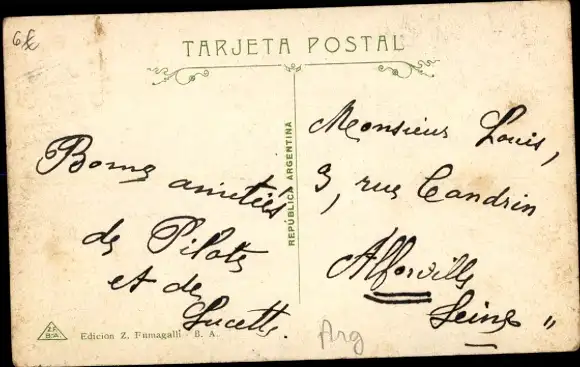 6£
TARJETA POSTAL
REPÚBLICA ARGENTINA
Bonnes amitiés
de Pilote
et de
Lucette.
Monsieur Louis,
3, rue Candrin
Alforville
Seine "
Z.F.
B.A.
Edicion Z. Fumagalli - B. A.
Arg